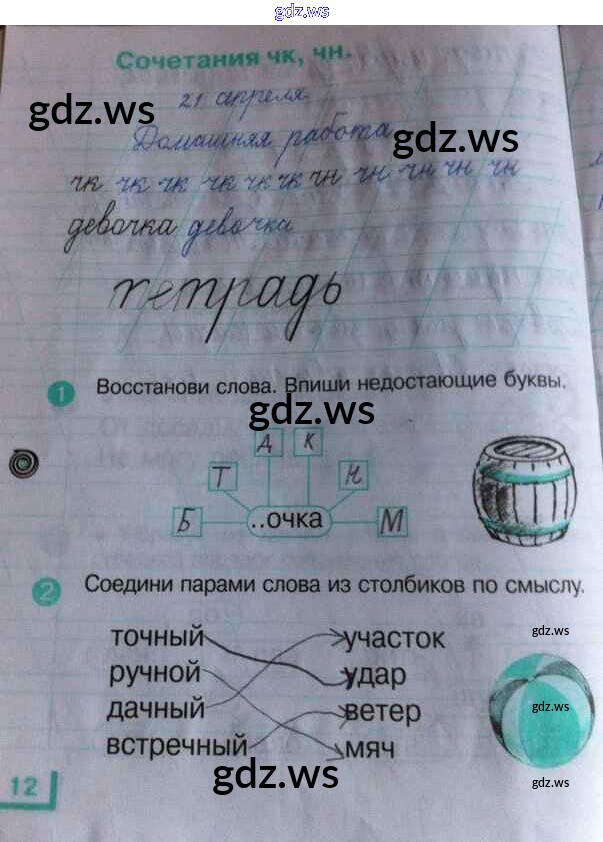 gdz.ws
Сочетания чк, чн.
gdz.ws
21 апреля
Домашняя работа
gdz.ws
чк чк чк чк чк чк чн чн чн чн чн
девочка девочка
тетрадь
1 Восстанови слова. Впиши недостающие буквы.
gdz.ws
Д К
Т Н
Б ..очка М
2 Соедини парами слова из столбиков по смыслу.
точный участок
gdz.ws
ручной удар
дачный ветер
gdz.ws
встречный мяч
gdz.ws
gdz.ws
12